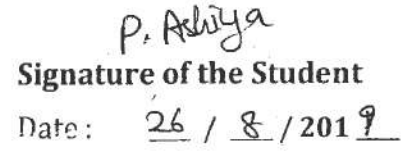 P. Ashiya
Signature of the Student
Date : 26 / 8 / 2019